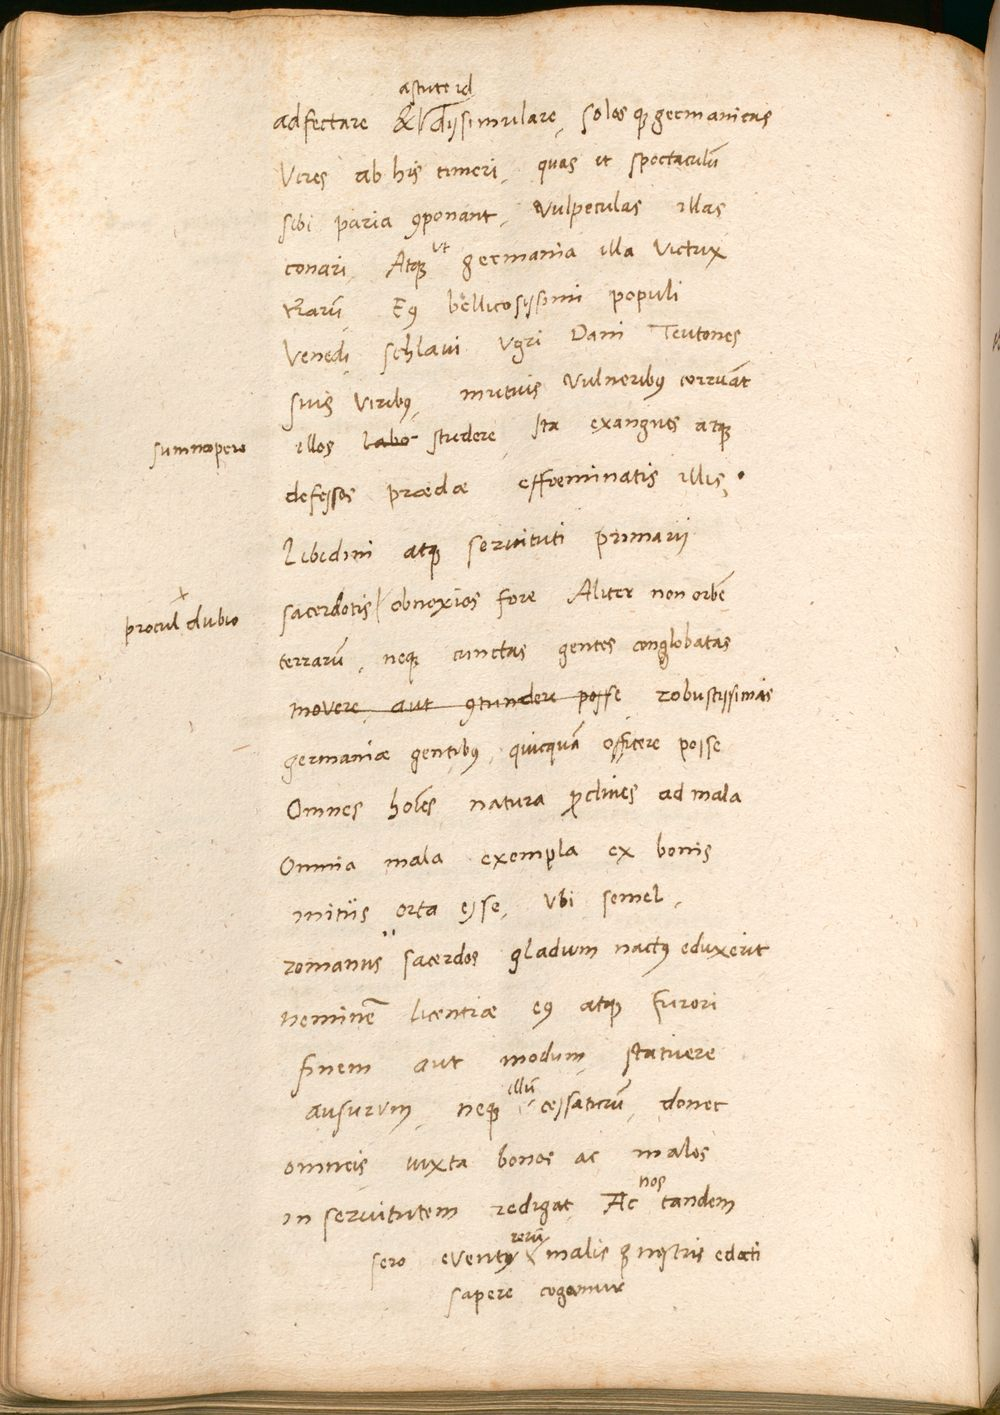 astute id
adfectare & dissimulare, solos q; germanicas
Vires ab his timeri, quas ut spectaculū
sibi paria ꝯponant, Vulpeculas illas
conari, Atq; ut germania illa Victrix
rerarū Eꝰ bellicosissimi populi
Venedi, Schlavi Vgri Dani Teutones
suis Viribꝰ, mutuis Vulneribꝰ corruāt
summopere illos labo- studere, Ita exangues atq;
defessos prædæ effœminatis illis,
Libidini atq; servituti primarii
procul dubio sacerdotis obnoxios fore Aliter non orbē
terrarū, neq; cunctas gentes conglobatas
movere, aut ꝯtundere posse robustissimas
germaniæ gentibꝰ, quicquā officere posse
Omnes hoīes natura ꝓclives ad mala
Omnia mala exempla ex bonis
initiis orta esse, Vbi semel,
romanus sacerdos gladium nactꝰ eduxerit
neminē licentiæ eꝰ atq; furori
finem aut modum, statuere
ausurum, neq; illū cessaturū, donec
omneis iuxta bonos ac malos
in servitutem redigat, Ac nos tandem
sero eventꝰ rerū malis ꝙ nostris edocti
sapere cogamur